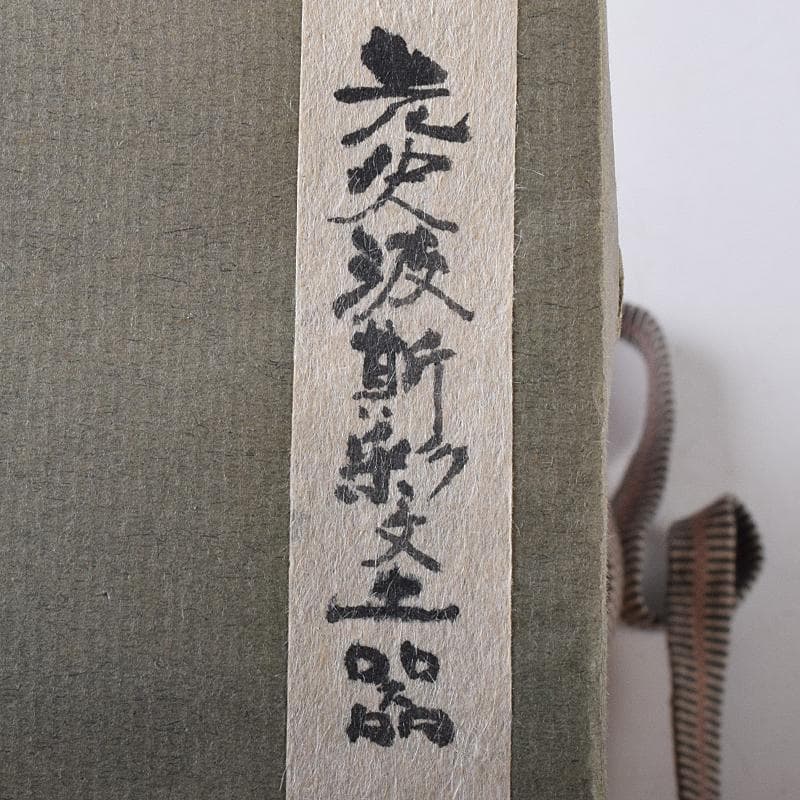 先史波斯彩文土器